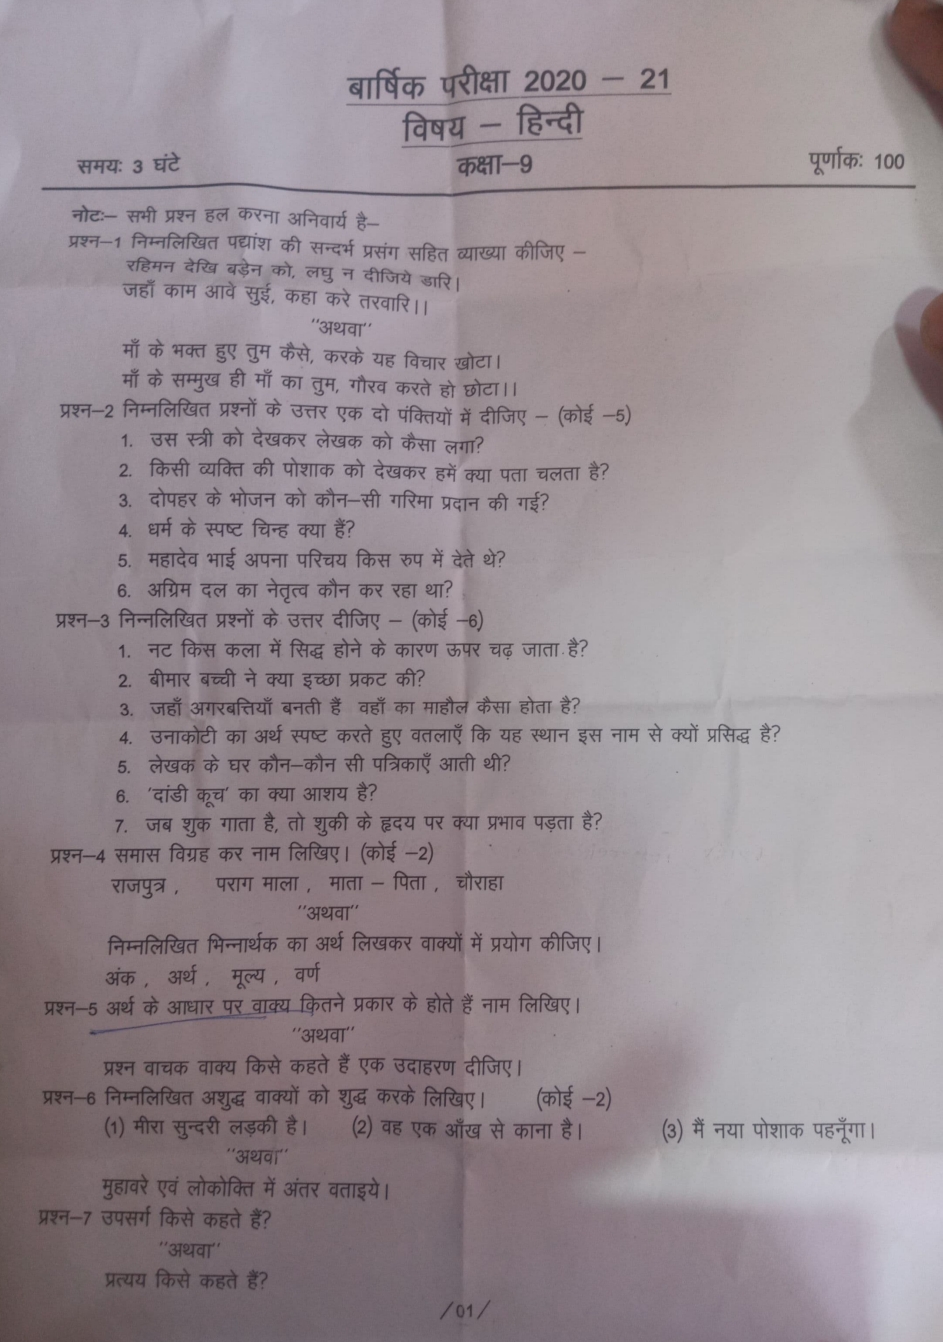 बार्षिक परीक्षा 2020 – 21
विषय – हिन्दी
समयः 3 घंटे कक्षा–9 पूर्णाकः 100
नोटः– सभी प्रश्न हल करना अनिवार्य है–
प्रश्न–1 निम्नलिखित पद्यांश की सन्दर्भ प्रसंग सहित व्याख्या कीजिए –
रहिमन देखि बड़ेन को, लघु न दीजिये डारि।
जहाँ काम आवे सुई, कहा करे तरवारि।।
"अथवा"
माँ के भक्त हुए तुम कैसे, करके यह विचार खोटा।
माँ के सम्मुख ही माँ का तुम, गौरव करते हो छोटा।।
प्रश्न–2 निम्नलिखित प्रश्नों के उत्तर एक दो पंक्तियों में दीजिए – (कोई –5)
1. उस स्त्री को देखकर लेखक को कैसा लगा?
2. किसी व्यक्ति की पोशाक को देखकर हमें क्या पता चलता है?
3. दोपहर के भोजन को कौन–सी गरिमा प्रदान की गई?
4. धर्म के स्पष्ट चिन्ह क्या हैं?
5. महादेव भाई अपना परिचय किस रुप में देते थे?
6. अग्रिम दल का नेतृत्व कौन कर रहा था?
प्रश्न–3 निन्नलिखित प्रश्नों के उत्तर दीजिए – (कोई –6)
1. नट किस कला में सिद्ध होने के कारण ऊपर चढ़ जाता है?
2. बीमार बच्ची ने क्या इच्छा प्रकट की?
3. जहाँ अगरबत्तियाँ बनती हैं वहाँ का माहौल कैसा होता है?
4. उनाकोटी का अर्थ स्पष्ट करते हुए वतलाएँ कि यह स्थान इस नाम से क्यों प्रसिद्ध है?
5. लेखक के घर कौन–कौन सी पत्रिकाएँ आती थी?
6. 'दांडी कूच' का क्या आशय है?
7. जब शुक गाता है, तो शुकी के हृदय पर क्या प्रभाव पड़ता है?
प्रश्न–4 समास विग्रह कर नाम लिखिए। (कोई –2)
राजपुत्र , पराग माला , माता – पिता , चौराहा
"अथवा"
निम्नलिखित भिन्नार्थक का अर्थ लिखकर वाक्यों में प्रयोग कीजिए।
अंक , अर्थ , मूल्य , वर्ण
प्रश्न–5 अर्थ के आधार पर वाक्य कितने प्रकार के होते हैं नाम लिखिए।
"अथवा"
प्रश्न वाचक वाक्य किसे कहते हैं एक उदाहरण दीजिए।
प्रश्न–6 निम्नलिखित अशुद्ध वाक्यों को शुद्ध करके लिखिए। (कोई –2)
(1) मीरा सुन्दरी लड़की है। (2) वह एक आँख से काना है। (3) मैं नया पोशाक पहनूँगा।
"अथवा"
मुहावरे एवं लोकोक्ति में अंतर वताइये।
प्रश्न–7 उपसर्ग किसे कहते हैं?
"अथवा"
प्रत्यय किसे कहते हैं?
/01/